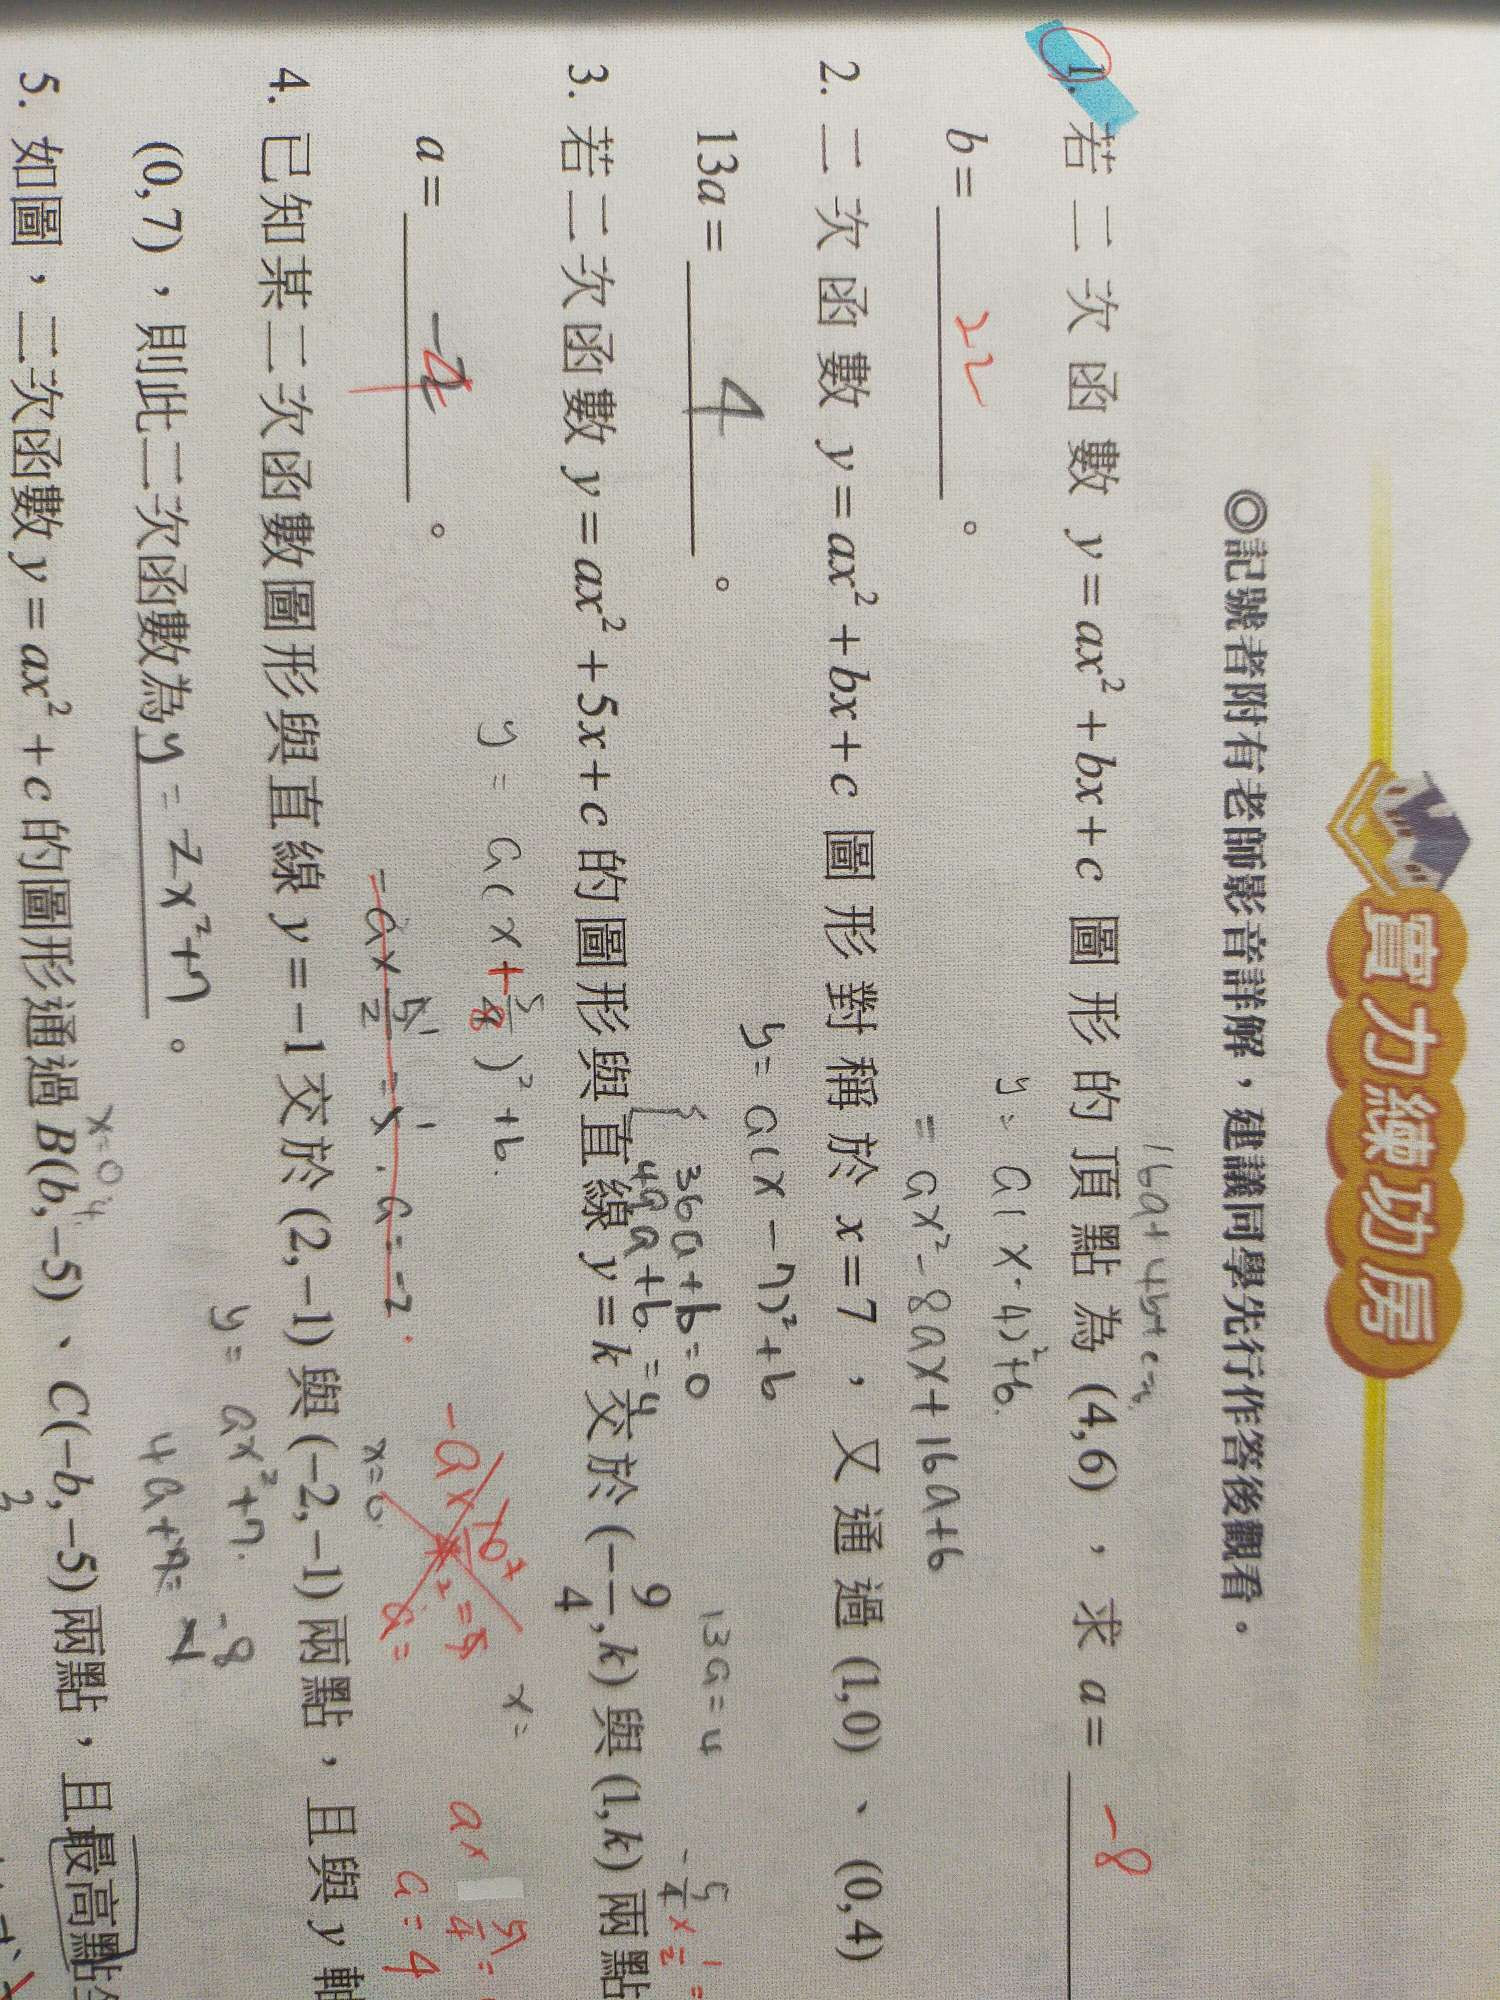 實力練功房
◎記號者附有老師影音詳解，建議同學先行作答後觀看。
1. 若二次函數 y=ax²+bx+c 圖形的頂點為 (4,6)，求 a= -8
b= 22 。
y= a(x-4)²+6.
= ax²-8ax+16a+6
2. 二次函數 y=ax²+bx+c 圖形對稱於 x=7，又通過 (1,0)、(0,4)
13a= 4 。
y= a(x-7)²+b
36a+b=0
49a+b=4
13a=4
3. 若二次函數 y=ax²+5x+c 的圖形與直線 y=k 交於 (-9/4,k) 與 (1,k) 兩點
a= 。
y = a(x+5/8)²+b.
x=
a=4
4. 已知某二次函數圖形與直線 y=-1 交於 (2,-1) 與 (-2,-1) 兩點，且與 y 軸
x=0.
(0,7)，則此二次函數為 y=-2x²+7 。
y= ax²+7.
-8
4a+7=-1
5. 如圖，二次函數 y=ax²+c 的圖形通過 B(b,-5)、C(-b,-5) 兩點，且最高點